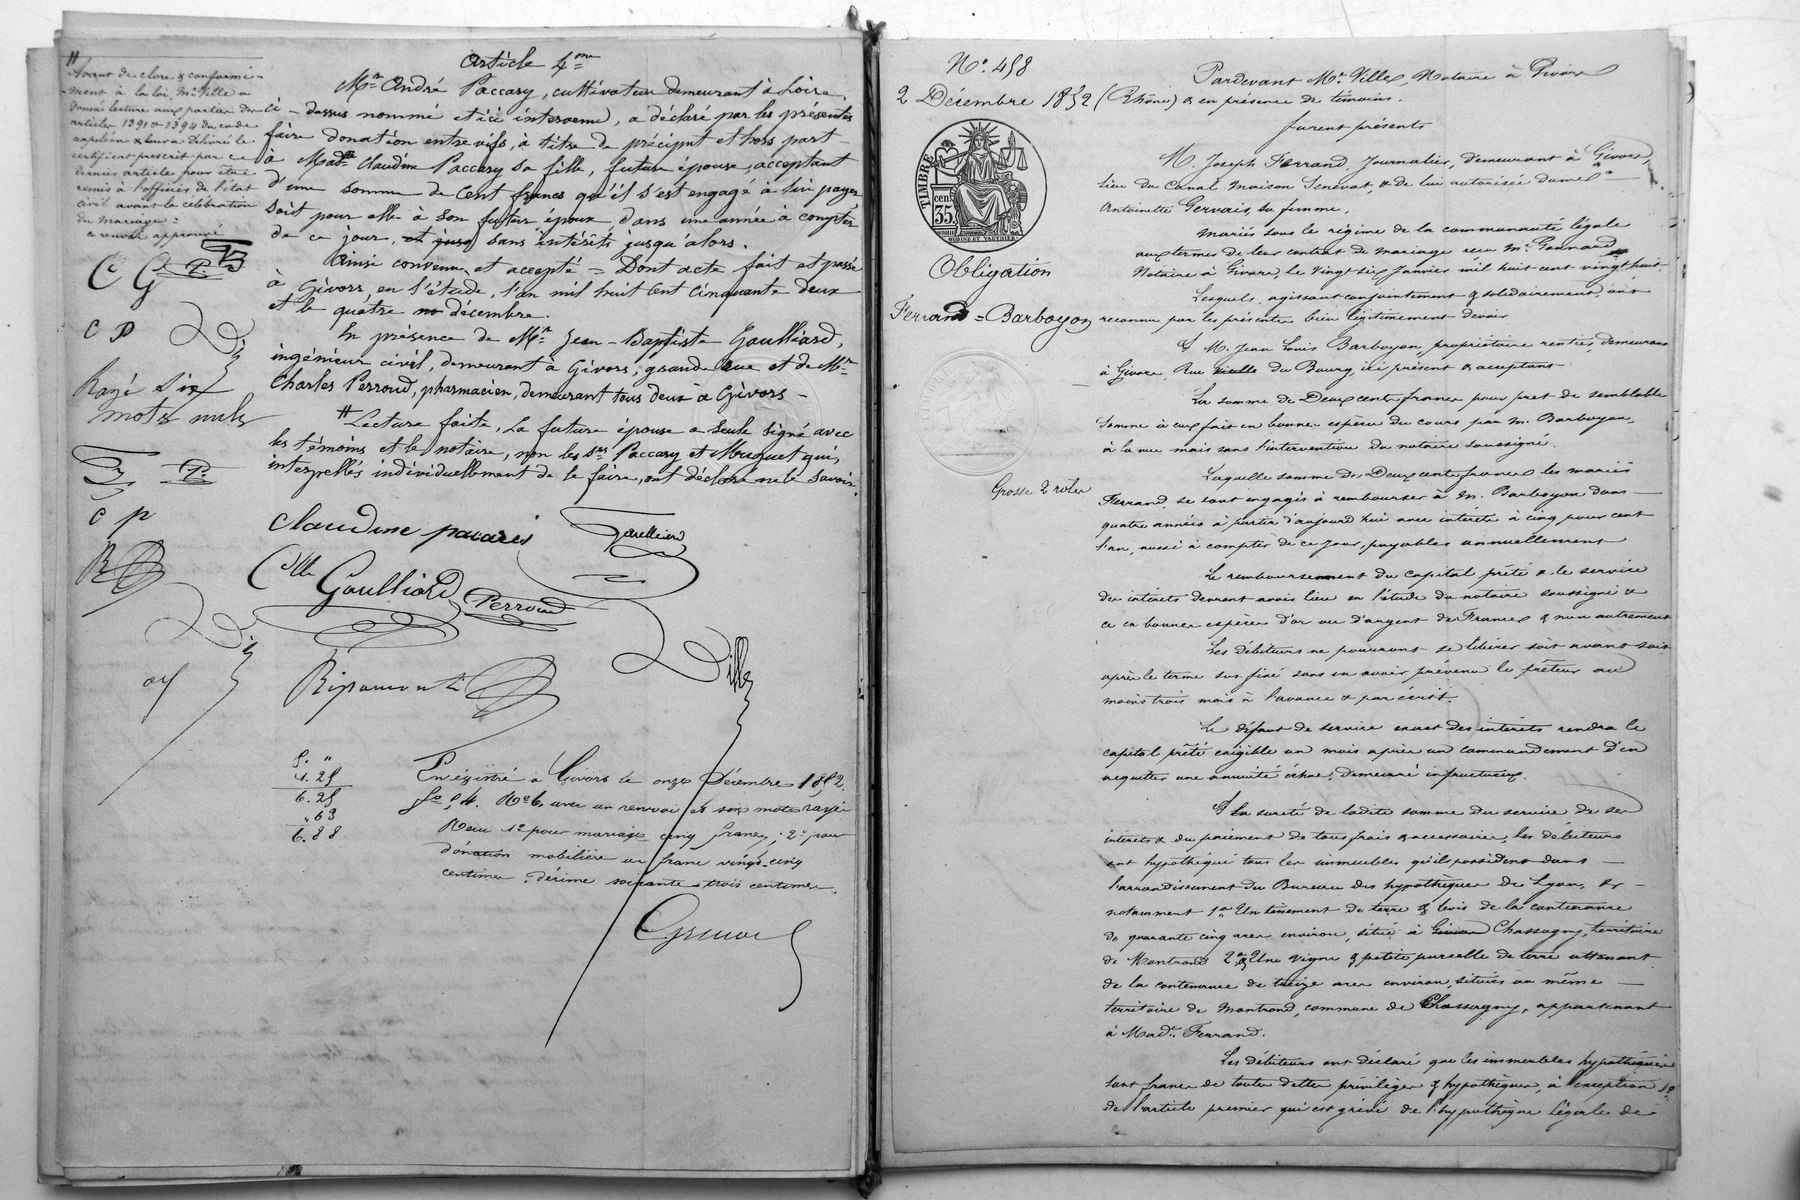 Avant de clore & conformé-
ment à la loi Me Ville a
donné lecture aux parties des
articles 1391 & 1394 du code
napoléon & leur a délivré le
certificat prescrit par ce
dernier article pour être
remis à l'officier de l'état
civil avant la célébration
du mariage =
ce renvoi approuvé
C G P.
C P
Rayé six
mots nuls
P.
C P
Article 4me
Mr André Paccary, cultivateur demeurant à Loire,
ci-dessus nommé et ici intervenu, a déclaré par les présentes
faire donation entrevifs, à titre de préciput et hors part
à Madlle Claudine Paccary sa fille, future épouse, acceptant
d'une somme de Cent francs qu'il s'est engagé à lui payer
soit pour elle à son futur époux dans une année à compter
de ce jour, et jusq sans intérêts jusqu'alors.
Ainsi convenu et accepté = Dont acte fait et passé
à Givors, en l'étude, l'an mil huit cent cinquante deux
et le quatre no décembre.
En présence de Mr Jean-Baptiste Goulliard,
ingénieur civil, demeurant à Givors, grande rue et de Mr
Charles Perroud, pharmacien, demeurant tous deux à Givors -
# Lecture faite, la future épouse a seule signé avec
les témoins et le notaire, non les Srs Paccary et Muguet qui,
interpellés individuellement de le faire, ont déclaré ne le savoir.
Claudine pacaris
Clle Goulliard Perroud
Ripamonti
Ville
5. "
1. 25
6. 25
. 63
6. 88
Enregistré à Givors le onze Décembre 1852.
fo 54. Ro 6. avec un renvoi et six mots rayés
Reçu 1o pour mariage cinq francs; 2o pour
donation mobilière un franc vingt-cinq
centimes, décime soixante-trois centimes.
No. 458
2 Décembre 1852
TIMBRE
35 cen.
Obligation
Ferrand = Barboyon
Grosse 2 roles
Pardevant Me Ville, Notaire à Givors
(Rhône) & en présence de témoins.
furent présents
M. Joseph Ferrand Journalier, demeurant à Givors,
lieu du Canal maison Senevat & de lui autorisée dame
Antoinette Gervais, sa femme,
Mariés sous le régime de la communauté légale
aux termes de leur contrat de mariage reçu Me
Notaire à Givors, le vingt six Janvier mil huit cent vingt huit.
Lesquels, agissant conjointement & solidairement, ont
reconnu par les présentes bien légitimement devoir
A M. Jean Louis Barboyon, propriétaire rentier, demeurant
à Givors, Rue vieille du Bourg, ici présent & acceptant
La somme de Deux cents francs pour prêt de semblable
somme à eux fait en bonnes espèces du cours par M. Barboyon,
à la vue mais sans l'intervention du notaire soussigné.
Laquelle somme de Deux cents francs les mariés
Ferrand, se sont engagés à rembourser à M. Barboyon dans
quatre années à partir d'aujourd'hui avec intérêts à cinq pour cent
l'an, aussi à compter de ce jour, payables annuellement
Le remboursement du capital prêté & le service
des intérêts devront avoir lieu en l'étude du notaire soussigné &
ce en bonnes espèces d'or ou d'argent de France & non autrement
Les débiteurs ne pourront se libérer soit avant soit
après le terme sus fixé sans en avoir prévenu le prêteur au
moins trois mois à l'avance & par écrit.
Le défaut de service exact des intérêts rendra le
capital prêté exigible un mois après un commandement d'en
acquitter une annuité échue, demeuré infructueux.
A la sureté de ladite somme du service de ses
intérêts & du paiement de tous frais & accessoires, les débiteurs
ont hypothéqué tous les immeubles qu'ils possèdent dans
l'arrondissement du Bureau des hypothèques de Lyon, &
notamment 1o Un tènement de terre & bois de la contenance
de quarante cinq ares environ, situé à Givors Chassagny, territoire
de Montrond 2o & Une vigne & petite parcelle de terre attenant
de la contenance de treize ares environ, situées au même
territoire de Montrond, commune de Chassagny, appartenant
à Made Ferrand.
Les débiteurs ont déclaré que les immeubles hypothéqués
sont francs de toutes dettes, privilèges & hypothèques, à exception 1o
de l'article premier qui est grévé de l'hypothèque légale de